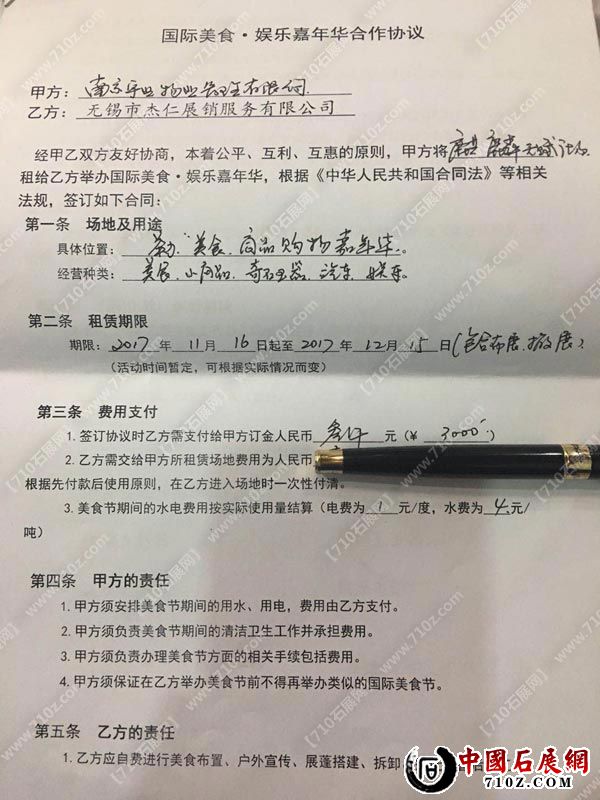 国际美食·娱乐嘉年华合作协议
甲方：南京 物业管理有限公司
乙方：无锡市杰仁展销服务有限公司
经甲乙双方友好协商，本着公平、互利、互惠的原则，甲方将
租给乙方举办国际美食·娱乐嘉年华，根据《中华人民共和国合同法》等相关
法规，签订如下合同：
第一条 场地及用途
具体位置： "美食、商品购物嘉年华。
经营种类：美食、小商品、奇石玉器、汽车、娱乐。
第二条 租赁期限
期限：2017 年 11 月 16 日起至 2017 年 12 月 15 日（包含布展、撤展）
（活动时间暂定，可根据实际情况而变）
第三条 费用支付
1. 签订协议时乙方需支付给甲方订金人民币 叁仟 元（￥ 3000 ）
2. 乙方需交给甲方所租赁场地费用为人民币
根据先付款后使用原则，在乙方进入场地时一次性付清。
3. 美食节期间的水电费用按实际使用量结算（电费为 1 元/度，水费为 4 元/
吨）
第四条 甲方的责任
1. 甲方须安排美食节期间的用水、用电，费用由乙方支付。
2. 甲方须负责美食节期间的清洁卫生工作并承担费用。
3. 甲方须负责办理美食节方面的相关手续包括费用。
4. 甲方须保证在乙方举办美食节前不得再举办类似的国际美食节。
第五条 乙方的责任
1. 乙方应自费进行美食布置、户外宣传、展蓬搭建、拆卸
中國石展網
710Z.COM
【710石展网】
www.710z.com